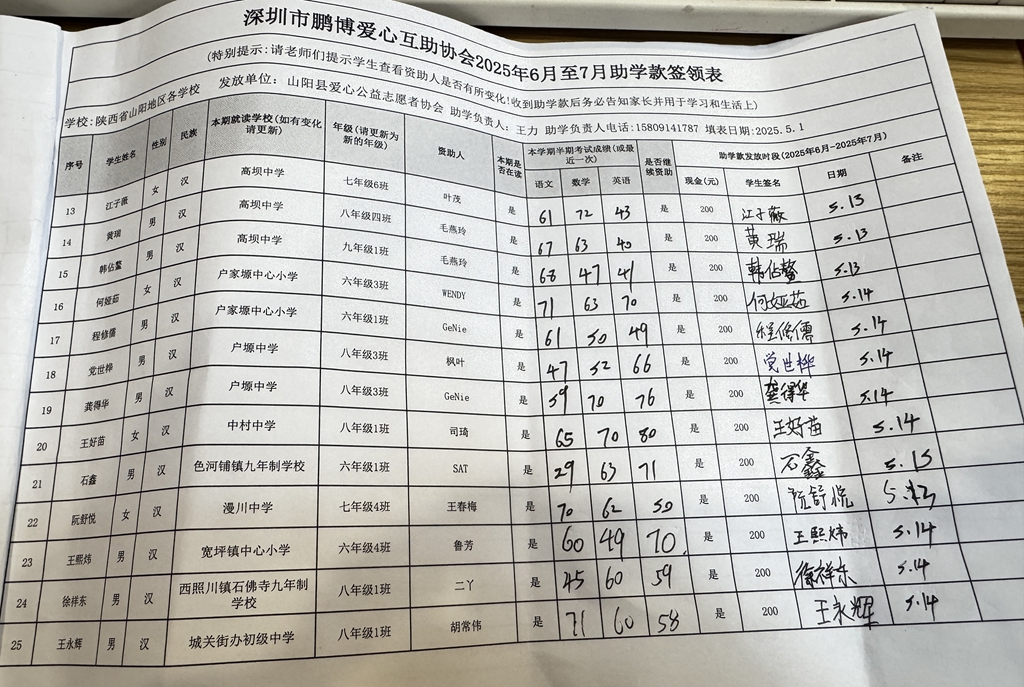 深圳市鹏博爱心互助协会2025年6月至7月助学款签领表
(特别提示:请老师们提示学生查看资助人是否有所变化!收到助学款后务必告知家长并用于学习和生活上)
学校:陕西省山阳地区各学校 发放单位:山阳县爱心公益志愿者协会 助学负责人:王力 助学负责人电话:15809141787 填表日期:2025.5.1
序号 学生姓名 性别 民族 本期就读学校(如有变化请更新) 年级(请更新为新的年级) 资助人 本期是否在读 本学期半期考试成绩(或最近一次) 语文 数学 英语 是否继续资助 助学款发放时段(2025年6月-2025年7月) 现金(元) 学生签名 日期 备注
13 江子薇 女 汉 高坝中学 七年级6班 叶茂 是 61 72 43 是 200 江子薇 5.13
14 黄瑞 男 汉 高坝中学 八年级四班 毛燕玲 是 67 63 40 是 200 黄瑞 5.13
15 韩佔鳌 男 汉 高坝中学 九年级1班 毛燕玲 是 68 47 41 是 200 韩佔鳌 5.13
16 何娅茹 女 汉 户家塬中心小学 六年级3班 WENDY 是 71 63 70 是 200 何娅茹 5.14
17 程修儒 男 汉 户家塬中心小学 六年级1班 GeNie 是 61 50 49 是 200 程修儒 5.14
18 党世桦 男 汉 户塬中学 八年级3班 枫叶 是 47 52 66 是 200 党世桦 5.14
19 龚得华 男 汉 户塬中学 八年级3班 GeNie 是 59 70 76 是 200 龚得华 5.14
20 王好苗 女 汉 中村中学 八年级1班 司琦 是 65 70 80 是 200 王好苗 5.14
21 石鑫 男 汉 色河铺镇九年制学校 六年级1班 SAT 是 29 63 71 是 200 石鑫 5.15
22 阮舒悦 女 汉 漫川中学 七年级4班 王春梅 是 70 62 50 是 200 阮舒悦 5.13
23 王熙炜 男 汉 宽坪镇中心小学 六年级4班 鲁芳 是 60 49 70. 是 200 王熙炜 5.14
24 徐祥东 男 汉 西照川镇石佛寺九年制学校 八年级1班 二丫 是 45 60 59 是 200 徐祥东 5.14
25 王永辉 男 汉 城关街办初级中学 八年级1班 胡常伟 是 71 60 58 是 200 王永辉 5.14